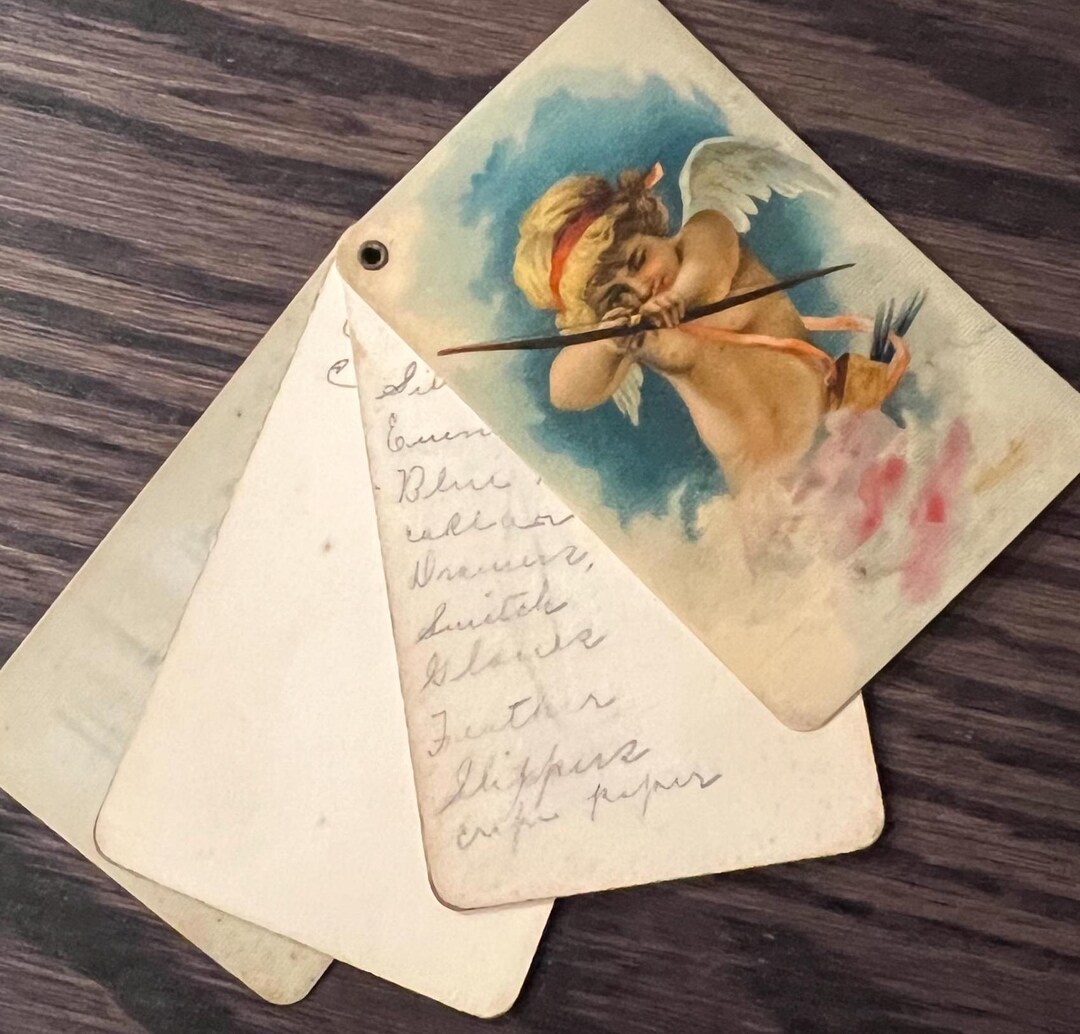 Sil
Even
Blue
Drawers,
Switch
Gloves
Feather
Slippers
crepe paper